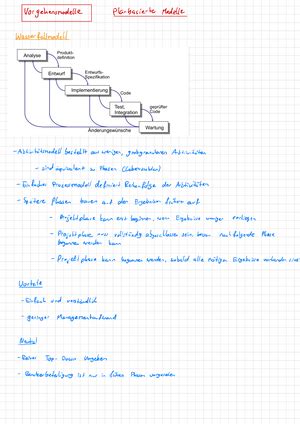 Vorgehensmodelle Planbasierte Modelle
Wasserfallmodell
Analyse
Produkt-
definition
Entwurf
Entwurfs-
Spezifikation
Implementierung
Code
Test,
Integration
geprüfter
Code
Wartung
Änderungswünsche
- Aktivitätsmodell besteht aus wenigen, grobgranularen Aktivitäten
- sind äquivalent zu Phasen (Lebenszyklus)
- Einfaches Prozessmodell definiert Reihenfolge der Aktivitäten
- Spätere Phasen bauen auf den Ergebnissen früherer auf
- Projektphase kann erst beginnen, wenn Ergebnisse voriger vorliegen
- Projektphase muss vollständig abgeschlossen sein bevor nachfolgende Phase
begonnen werden kann
- Projektphase kann begonnen werden, sobald alle nötigen Ergebnisse vorhanden sind
Vorteile
- Einfach und verständlich
- geringer Managementaufwand
- Reines Top-Down Vorgehen
- Benutzerbeteiligung ist nur in frühen Phasen vorgesehen